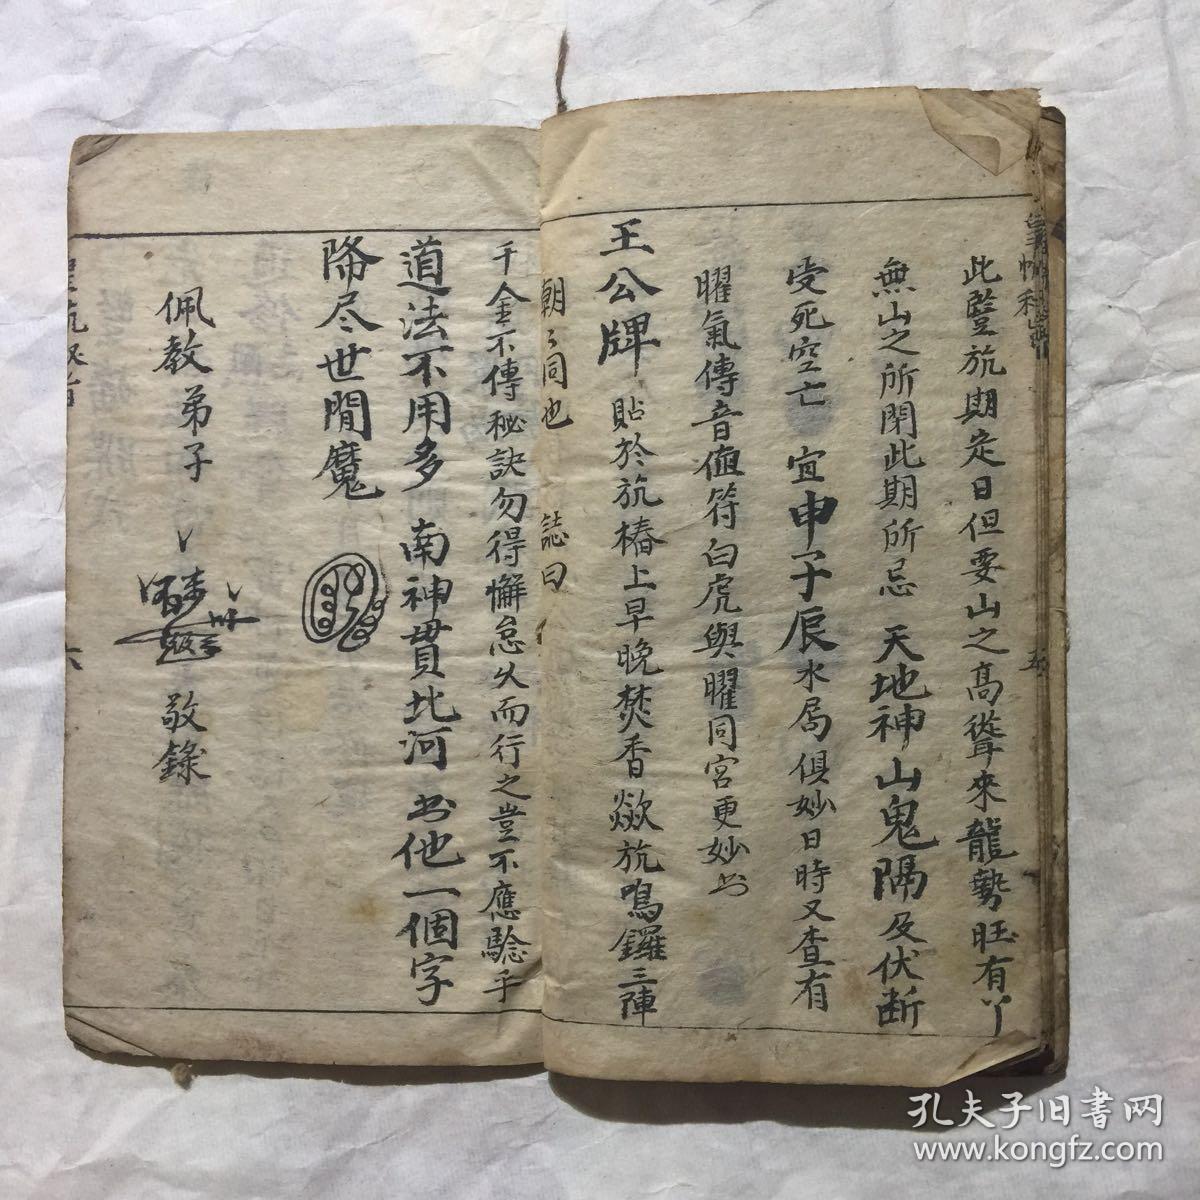 此豎旂期定日但要山之高聳來龍勢旺有丫
無山之所閑此期所忌 天地神山鬼隔及伏断
受死空亡 宜申子辰水局俱妙日時又查有
曜氣傳音值符白虎與曜同宮更妙
王公牌 貼於旂樁上早晚焚香歘旂鳴鑼三陣
朝々同也 誌曰
千金不傳秘訣勿得懈怠久而行之豈不應驗乎
道法不用多 南神貫北河 他一個字
降尽世間魔
佩教弟子 敬錄
六
孔夫子旧書网
www.kongfz.com